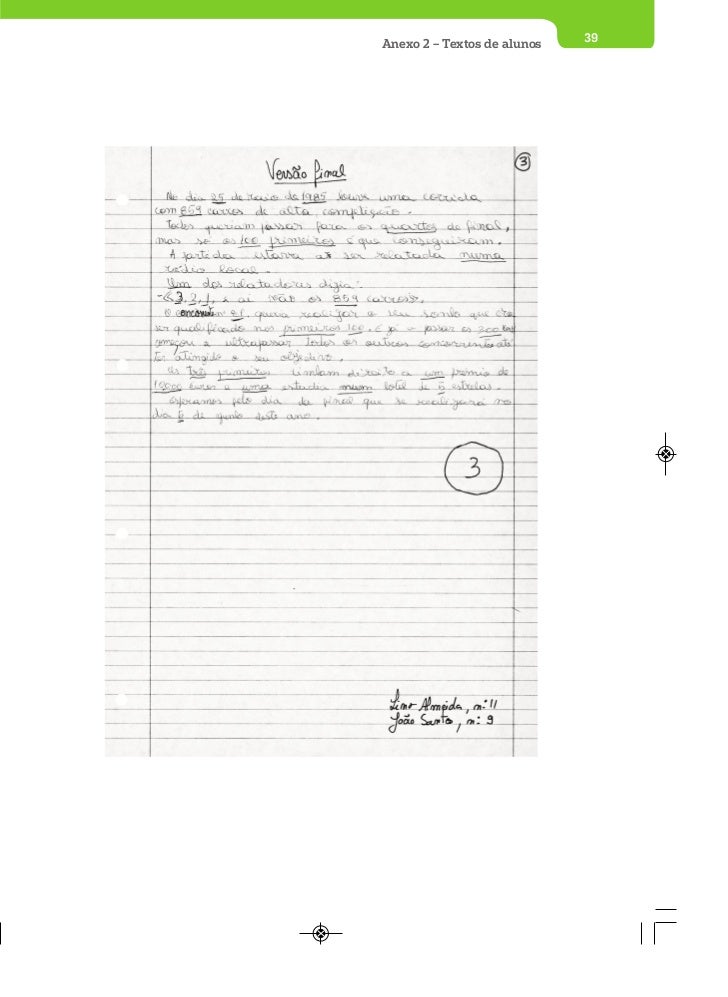 Anexo 2 – Textos de alunos
39
Versão final
3
No dia 25 de maio de 1985 houve uma corrida
com 859 carros de alta competição.
Todos queriam passar para os quartos de final,
mas só os 100 primeiros é que conseguiram.
A partida estava a ser relatada numa
rádio local.
Um dos relatadores dizia:
- 3, 2, 1, e aí vão os 859 carros.
O concorrente queria realizar o seu sonho que era
ser qualificado nos primeiros 100. E já a passar os 200
começou a ultrapassar todos os outros concorrentes até
ter atingido o seu objectivo.
Os três primeiros tinham direito a um prémio de
euros e uma estadia num hotel de 5 estrelas.
Esperamos pelo dia da final que se realizará no
dia 6 de junho deste ano.
3
Lino Almeida, nº 11
João Santo, nº 9